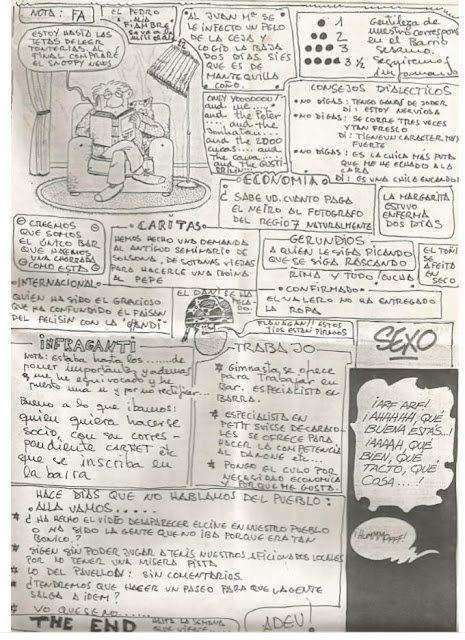 NOTA: FA
ESTOY HASTA LAS
TETAS DE LEER
TONTERIAS. AL
FINAL COMPRARÉ
EL SNOOPY NEWS
EL PEDRO
FIAMBRE
AL JUAN Mª SE
LE INFECTO UN PELO
DE LA CEJA Y
COGIO LA BAJA
DOS DIAS. SI ES
QUE ES DE
MANTEQUILLA
COÑO.
ONLY YOOOOOOU!
and me....
and the Peter
.... and the
Jonhatan...
and the 2000
Lucas.... and
the cama.... and
the GUSTI
1
2
3
3 1/2
Gentileza de
nuestro corresponsal
en el Barrio
Sesamo.
Seguiremos
Informando
CONSEJOS DIALECTICOS
• NO DIGAS: TENGO GANAS DE JODER
DI: ESTOY NERVIOSA
• NO DIGAS: SE CORRE TRES VECES
Y TAN FRESCO
DI: TIENE UN CARACTER MUY
FUERTE
• NO DIGAS: ES LA CHICA MÁS PUTA
QUE ME HE ECHADO A LA
CARA
DI: ES UNA CHICA ENCANDI
ECONOMIA
¿ SABE UD. CUANTO PAGA
EL NEIRO AL FOTOGRAFO
DEL REGIO 7 NATURALMENTE
LA MARGARITA
ESTUVO
ENFERMA
DOS DIAS
CREEMOS
QUE SOMOS
EL ÚNICO BAR
QUE HACEMOS
UNA CERDADA
COMO ESTA
CARITAS
HEMOS HECHO UNA DEMANDA
AL ANTIGUO SEMINARIO DE
SOLSONA, DE SOTANAS VIEJAS
PARA HACERLE UNA
AL PEPE
GERUNDIOS
A QUIEN LE SIGA PICANDO
QUE SE SIGA RASCANDO
RIMA Y TODO ¡OUCHA!
EL TOÑI
SE
AFEITA
EN SECO
CONFIRMADO
EL VALERO NO HA ENTREGADO
LA ROPA
INTERNACIONAL
QUIÉN HA SIDO EL GRACIOSO
QUE HA CONFUNDIDO EL FAISAN
DEL FELISIN CON LA "GANDI"
EL DANI SE HA
PELA
DO.
FLANAGAN!! ESTOS
TIOS ESTÁN PIRADOS
INFRAGANTI
NOTA: Estaba hasta los ....... de
poner importantez y ademas
q me he equivocado y he
puesto una u y por no rectificar...
Bueno a lo que ibamos:
quien quiera hacerse
socio, con su corres-
pondiente CARNET etc
que se inscriba en
la barra
TRABAJO
Gimnasta, se ofrece
para trabajar en
Bar. ESPECIALISTA EN
BARRA.
ESPECIALISTA EN
PETIT SUISSE DE CARACO-
LES SE OFRECE PARA
HACER LA COMPETENCIA
AL DANONE etc...
PONGO EL CULO POR
NECECIDAD ECONOMICA
Y PORQUE ME GUSTA.
SEXO
¡ARF ARF!
¡AHHHHH, QUÉ
BUENA ESTÁS...!
¡AAAAH, QUÉ
BIEN, QUÉ
TACTO, QUÉ
COSA...!
HACE DIAS QUE NO HABLAMOS DEL PUEBLO:
ALLA VAMOS....
¿ HA HECHO EL VIDEO DESAPARECER EL CINE EN NUESTRO PUEBLO
O HA SIDO LA GENTE QUE NO IBA PORQUE ERA TAN
BONICO.?
SIGEN SIN PODER JUGAR A TENIS NUESTROS AFICIONADOS LOCALES
POR NO TENER UNA MISERA PISTA
LO DEL PAVELLON: SIN COMENTARIOS.
¿TENDREMOS QUE HACER UN PASEO PARA QUE LA GENTE
SALGA A IDEM?
YO QUE SE NO.....
THE END
HASTA LA SEMANA
QUE VIENE
ADEU!